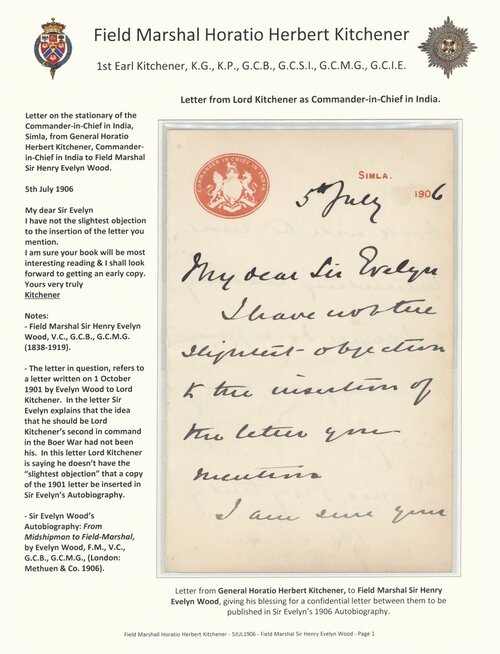 Field Marshal Horatio Herbert Kitchener
1st Earl Kitchener, K.G., K.P., G.C.B., G.C.S.I., G.C.M.G., G.C.I.E.
Letter from Lord Kitchener as Commander-in-Chief in India.
Letter on the stationary of the
Commander-in-Chief in India,
Simla, from General Horatio
Herbert Kitchener, Commander-
in-Chief in India to Field Marshal
Sir Henry Evelyn Wood.
5th July 1906
My dear Sir Evelyn
I have not the slightest objection
to the insertion of the letter you
mention.
I am sure your book will be most
interesting reading & I shall look
forward to getting an early copy.
Yours very truly
Kitchener
Notes:
- Field Marshal Sir Henry Evelyn
Wood, V.C., G.C.B., G.C.M.G.
(1838-1919).
- The letter in question, refers to
a letter written on 1 October
1901 by Evelyn Wood to Lord
Kitchener.  In the letter Sir
Evelyn explains that the idea
that he should be Lord
Kitchener's second in command
in the Boer War had not been
his.  In this letter Lord Kitchener
is saying he doesn't have the
"slightest objection" that a copy
of the 1901 letter be inserted in
Sir Evelyn's Autobiography.
- Sir Evelyn Wood's
Autobiography: From
Midshipman to Field-Marshal,
by Evelyn Wood, F.M., V.C.,
G.C.B., G.C.M.G., (London:
Methuen & Co. 1906).
COMMANDER IN CHIEF IN INDIA
SIMLA.
5th July 1906
My dear Sir Evelyn
I have not the
slightest objection
to the insertion of
the letter you
mention
I am sure your
Letter from General Horatio Herbert Kitchener, to Field Marshal Sir Henry
Evelyn Wood, giving his blessing for a confidential letter between them to be
published in Sir Evelyn's 1906 Autobiography.
Field Marshall Horatio Herbert Kitchener - 5JUL1906 - Field Marshal Sir Henry Evelyn Wood - Page 1